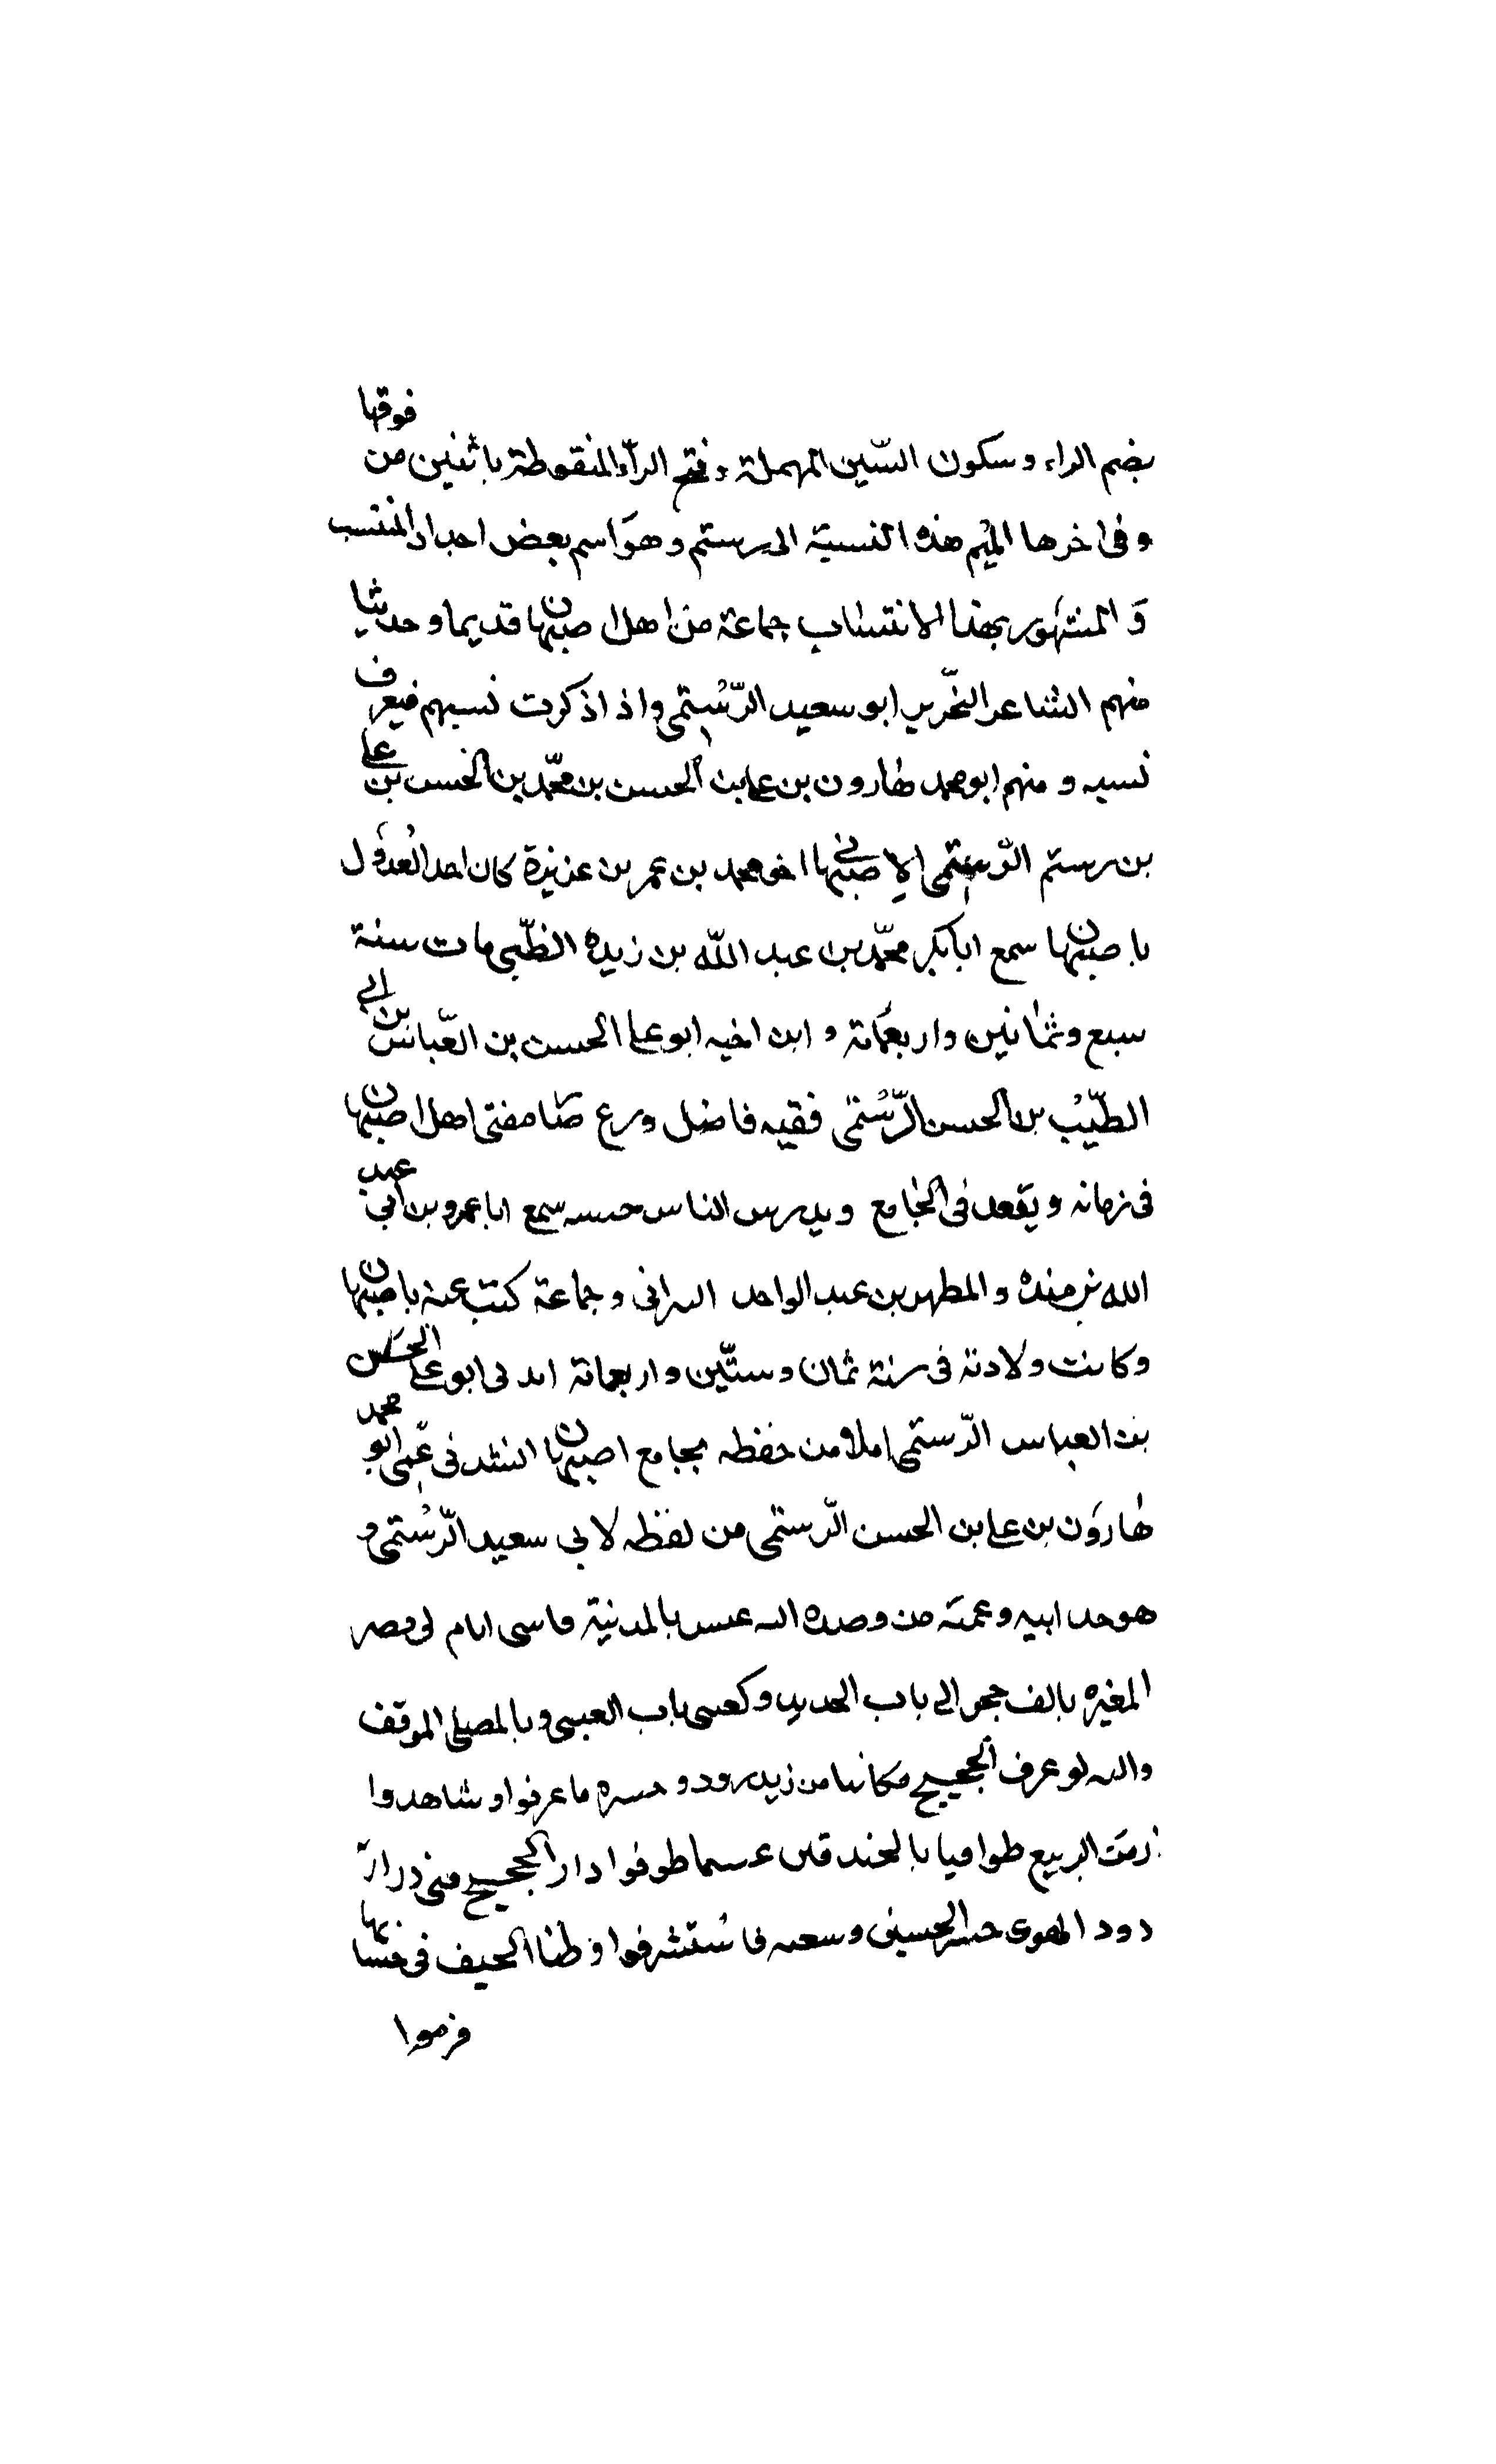 بضم الراء وسكون السّين المهملة وفتح الرآء المنقوطة باثنين من فوقها
وفى اخرها الميم هذه النسبة الى رستم وهو اسم بعض احداد المنتسب
وَ المشهور بهذا الانتساب جماعة من اهل اصبهان قديما وحديثا
منهم الشاعر النحّرير ابو سعيد الرّسُتمى واذا ذكرت نسبهم فيعرف
نسبه و منهم ابو محمد هارون بن على بن الحسن بن محمّد بن الحسن بن على
بن رستم الرّستمى الاصبهانى اخو محمد بن عمر بن عزيزة كان احد العُدوُل
باصبهان سمع ابا بكر محمّد بن عبد اللّه بن زيده الظّبى مات سنة
سبع وثمانين واربعمَائة و ابن اخيه ابو على الحسن بن العّباس بن ابى
الطّيّب بن الحسن الرّسُتمى فقيه فاضل ورع صَا مفتى اهل اصبهان
فى زمانه ويقعد فى الجامع ويدرس الناس حسبه سمع ابا عمرو بن ابى عبد
الله بن منده و المطهر بن عبد الواحد البرانى وجماعة كتبت عنه باصبهان
وكانت ولادته فى سنة ثمان وستّين واربعمائة انشدنى ابو على الحسَن
بن العباس الرّستمى املا من حفظه بجامع اصبهان انشدنى عّمى ابو محمد
هارَون بن على بن الحسن الرّستمى من لفظه لابى سعيد الرّسُتمى و
هو جد ابيه وعمته من بالمدنية ايام
المغيره بالف الى باب الحديد باب وبالمصلى الموقف
والله لو عرف الحجيج مكاننا من زيدرود و ما عرفوا او شاهدوا
زمَن الربيع طوافيا بالخندقين طوفوا دار الحجيج منى
الحسينى الخيف فى